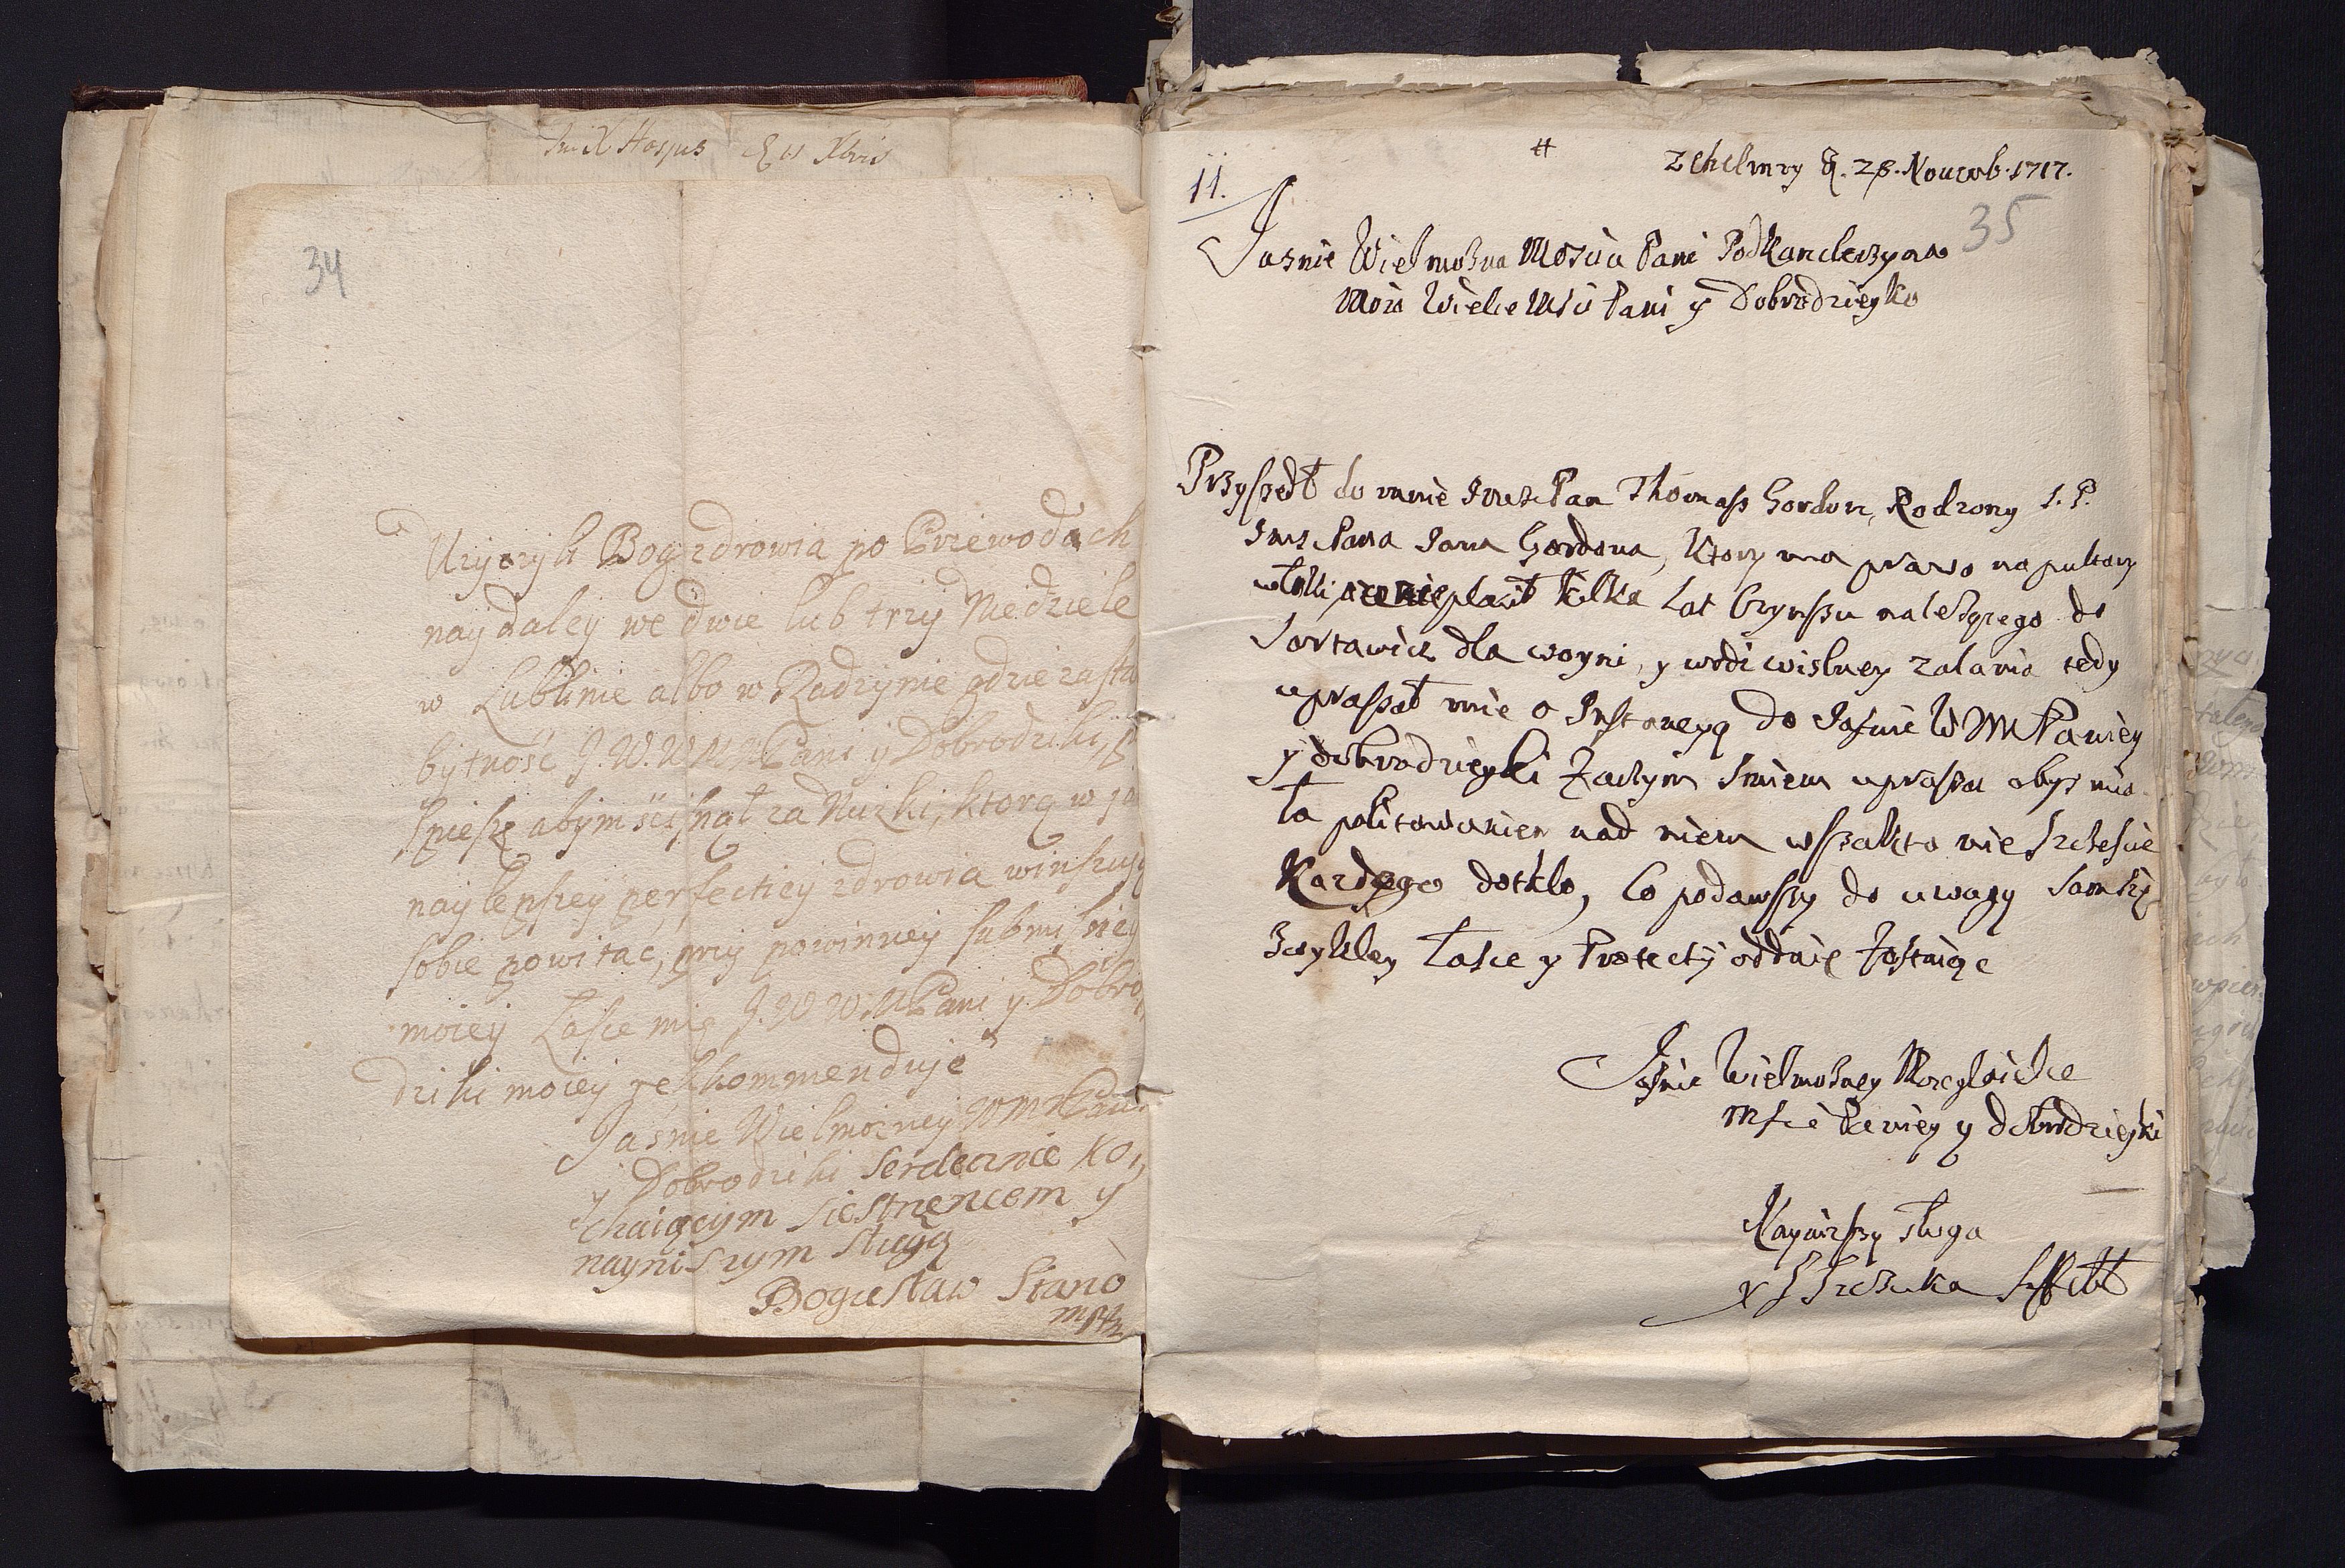 34
Uzyczyli Bog zdrowia po Przewodach
naydaley we dwie lub trzy Niedziele
w Lublinie albo w Radzynie gdzie zasta
bytność J. W. W M Pani y Dobrodziki,
spieszę abym scisnął za Nuzki, ktorą w ja
naylepszey perfectiey zdrowia winszuję
sobie powitac, przy powinney submisiiey
moiey Łasce mię J. W W. M Pani y Dobro,
dziki moiey rekkommenduję
Jaśnie Wielmożney W M Pani
y Dobrodziki serdecznie ko,
chaiącym siestrzencem y
nayniszym sługą
Bogusław
11.
#
z Chelmzy D. 28. Nouemb. 1717.
35
Jasnie Wielmożna Mościa Pani PodKanclerzyna
Moia Wielce Mśćia Pani y Dobrodzieyko
Przyszedł do mnie Pan Thomasz Gordon, Rodzony S. P.
Pana Jana Gordona, ktory ma prawo na pułtory
włuki, płacił kilka Lat Czynszu należącego do
Sartawicz dla woyni, y wodi wislney zalania tedy
upraszał mie o Instancyą do Jaśnie W M Paniey
y dobrodzieyki Zaczym smiem uprasza abys mia
ła politowanien nad niem wszakto nie szczescie
Kazdego dotklo, Co podawszy do uwagy Sam się
Zwykley Łasce y Protectij oddaię Zostaiąc
Jaśnie Wielmożney
Mscie Paniey y dobrodzieyki
Nayniższy sługa
X J Szczuka